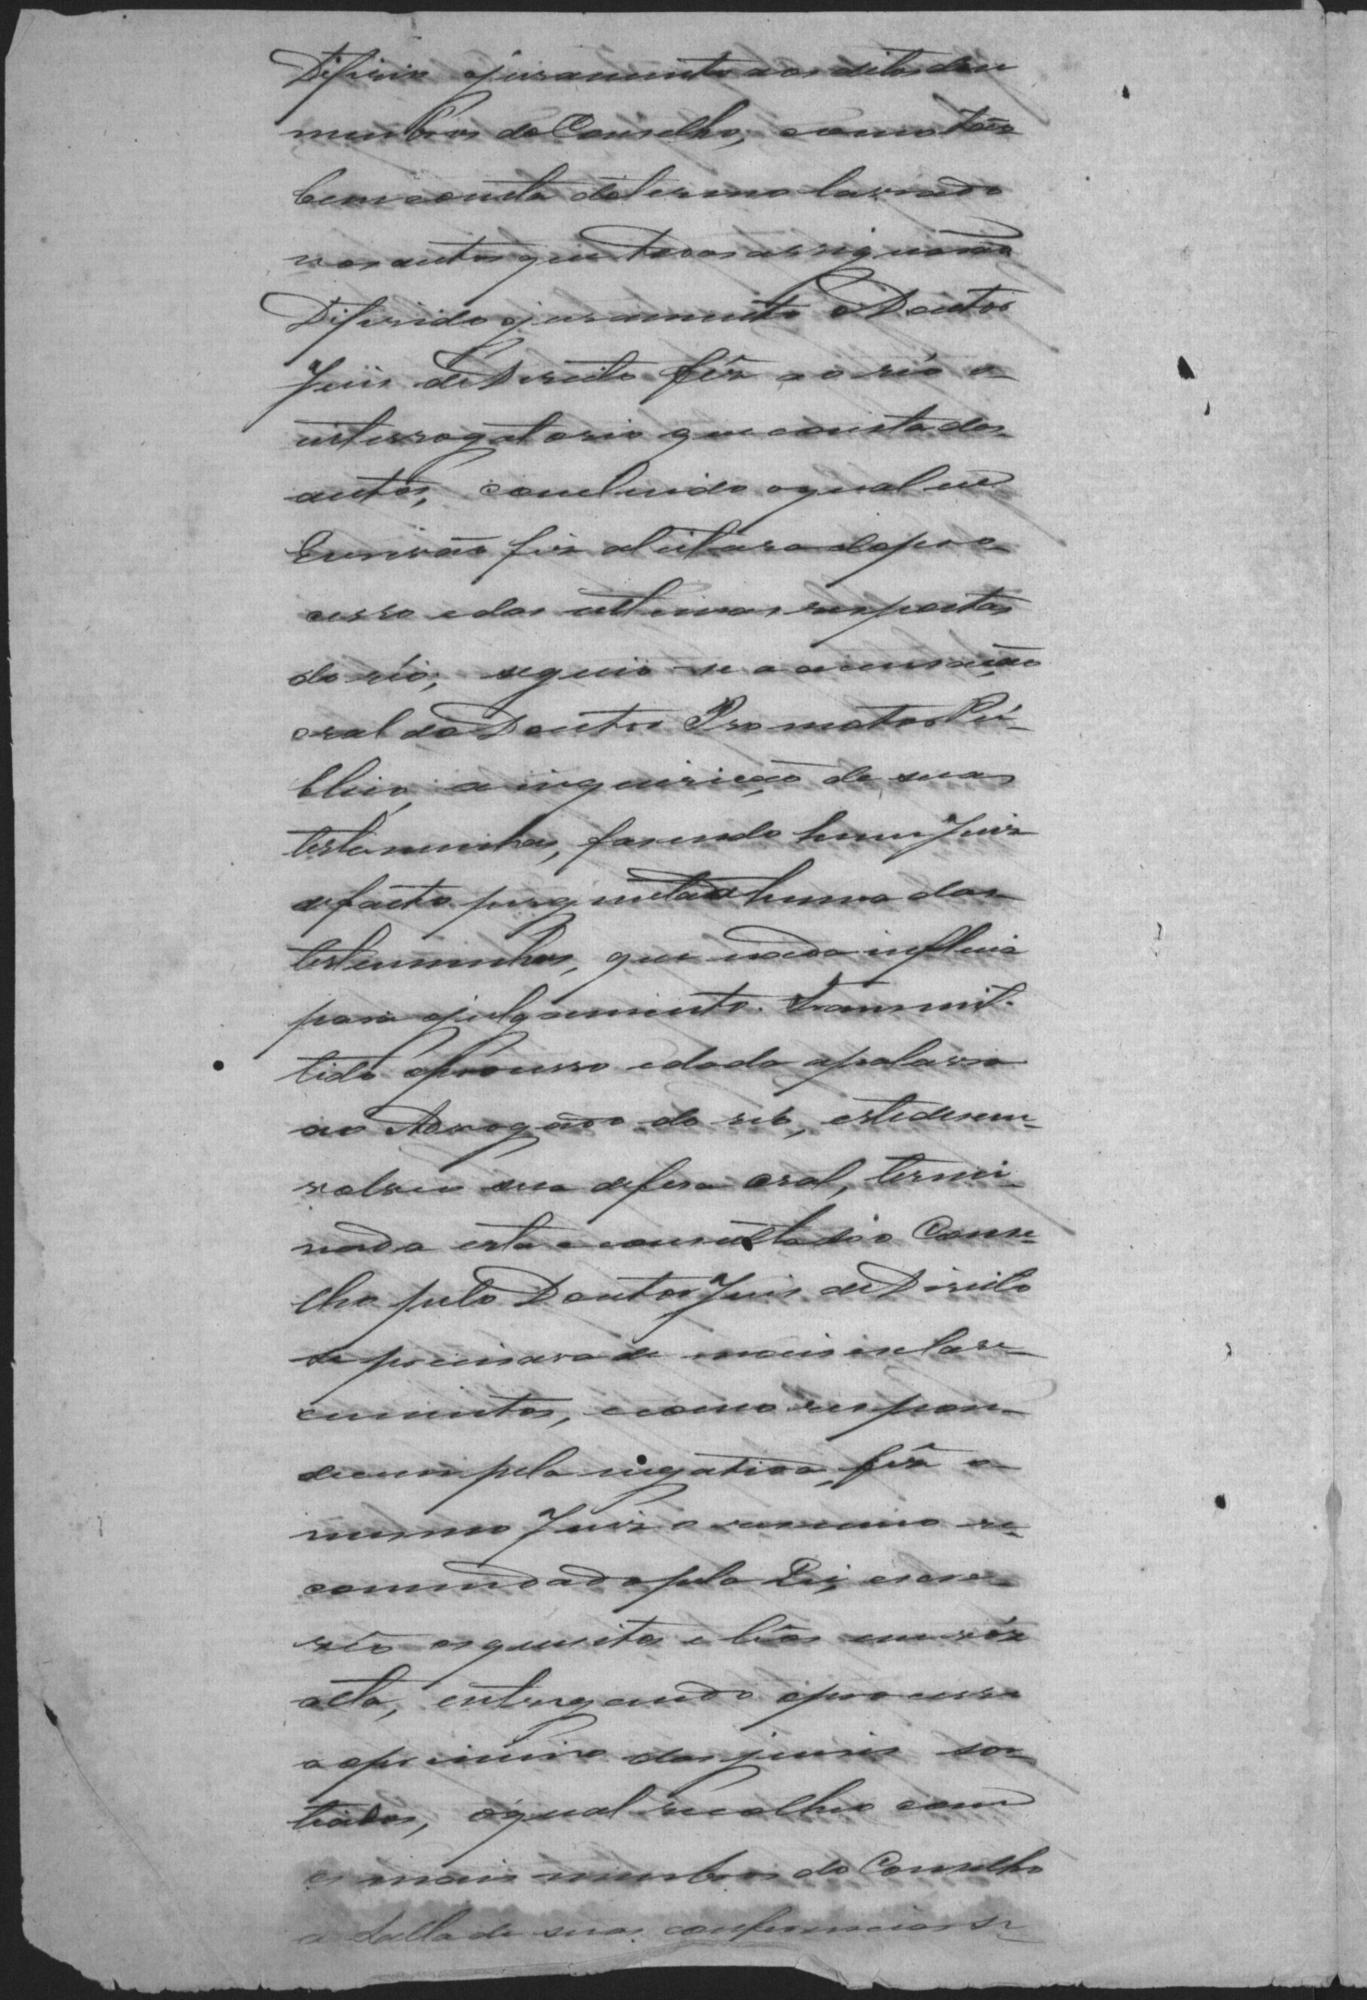 Diferir o juramento aos ditos doze
membros do Conselho, como tão
bem consta do termo lavrado
nos autos que todos assignarão
Diferido o juramento o Doutor
Juis de Direito fêz ao réo o
interrogatorio que consta dos
autos, concluido o qual eu
Escrivão fiz a leitura do pro-
cesso e das ultimas respostas
do réo; seguio-se a accusação
oral do Doutor Promotor Pú-
blico, a inquirição de suas
testemunhas, fasendo hum Juiz
de facto pergunta a huma das
testemunhas, que nada influia
para o julgamento. Transmit-
tido o processo e dada a palavra
ao Advogado do réo, este desen-
volveu sua defesa oral, termi-
nada esta e consultado o Conse-
lho pelo Doutor Juis de Direito
se precisava de mais esclare-
cimentos, e como respon-
derem pela negativa, fêz o
mesmo Juiz o resumo re-
comendado pela Lei, escre-
vêo os quesitos e lêos em vóz
alta, entregando o processo
ao primeiro dos juises sor-
teados, o qual recolheo com
os mais membros do Conselho
a Salla de suas conferencias se